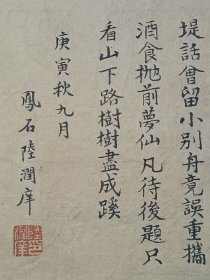 堤話曾留小別舟竟誤重攜
酒食拋前夢仙凡待後題只
看山下路樹樹盡成蹊
庚寅秋九月
鳳石陸潤庠